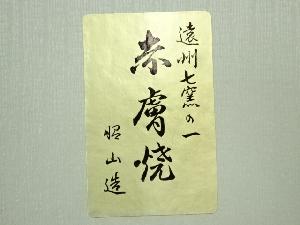 遠州七窯の一
赤膚焼
昭山造